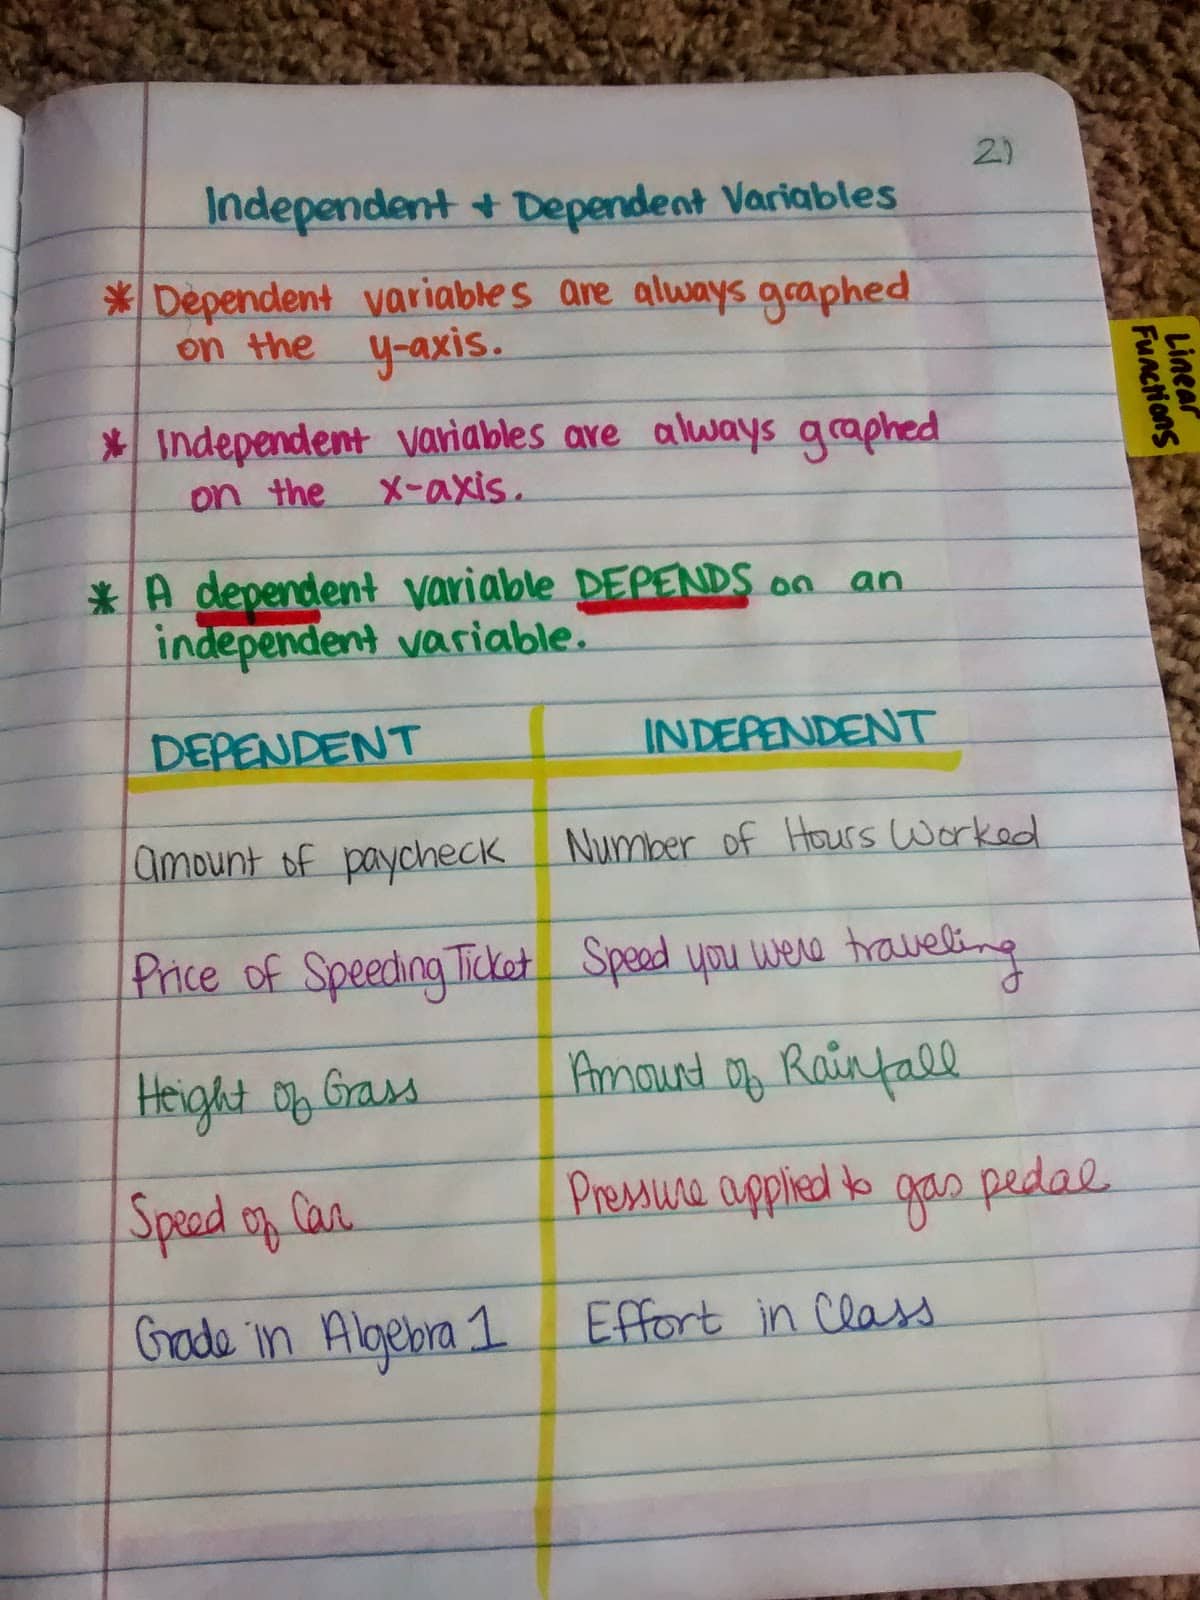 21
Independent + Dependent Variables
* Dependent variables are always graphed
on the y-axis.
* Independent variables are always graphed
on the x-axis.
* A dependent variable DEPENDS on an
independent variable.
DEPENDENT INDEPENDENT
amount of paycheck Number of Hours Worked
Price of Speeding Ticket Speed you were traveling
Height of Grass Amount of Rainfall
Speed of Car Pressure applied to gas pedal
Grade in Algebra 1 Effort in Class
Linear
Functions